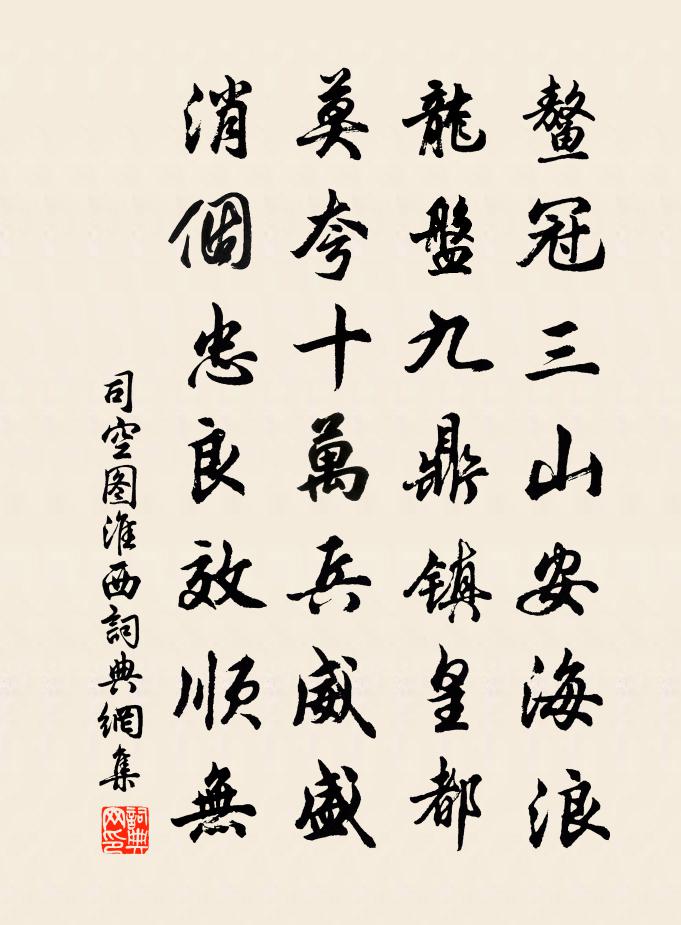 鼇冠三山安海浪
龍盤九鼎镇皇都
莫夸十萬兵威盛
消個忠良效順無
司空图淮西詞典網集
詞典网印